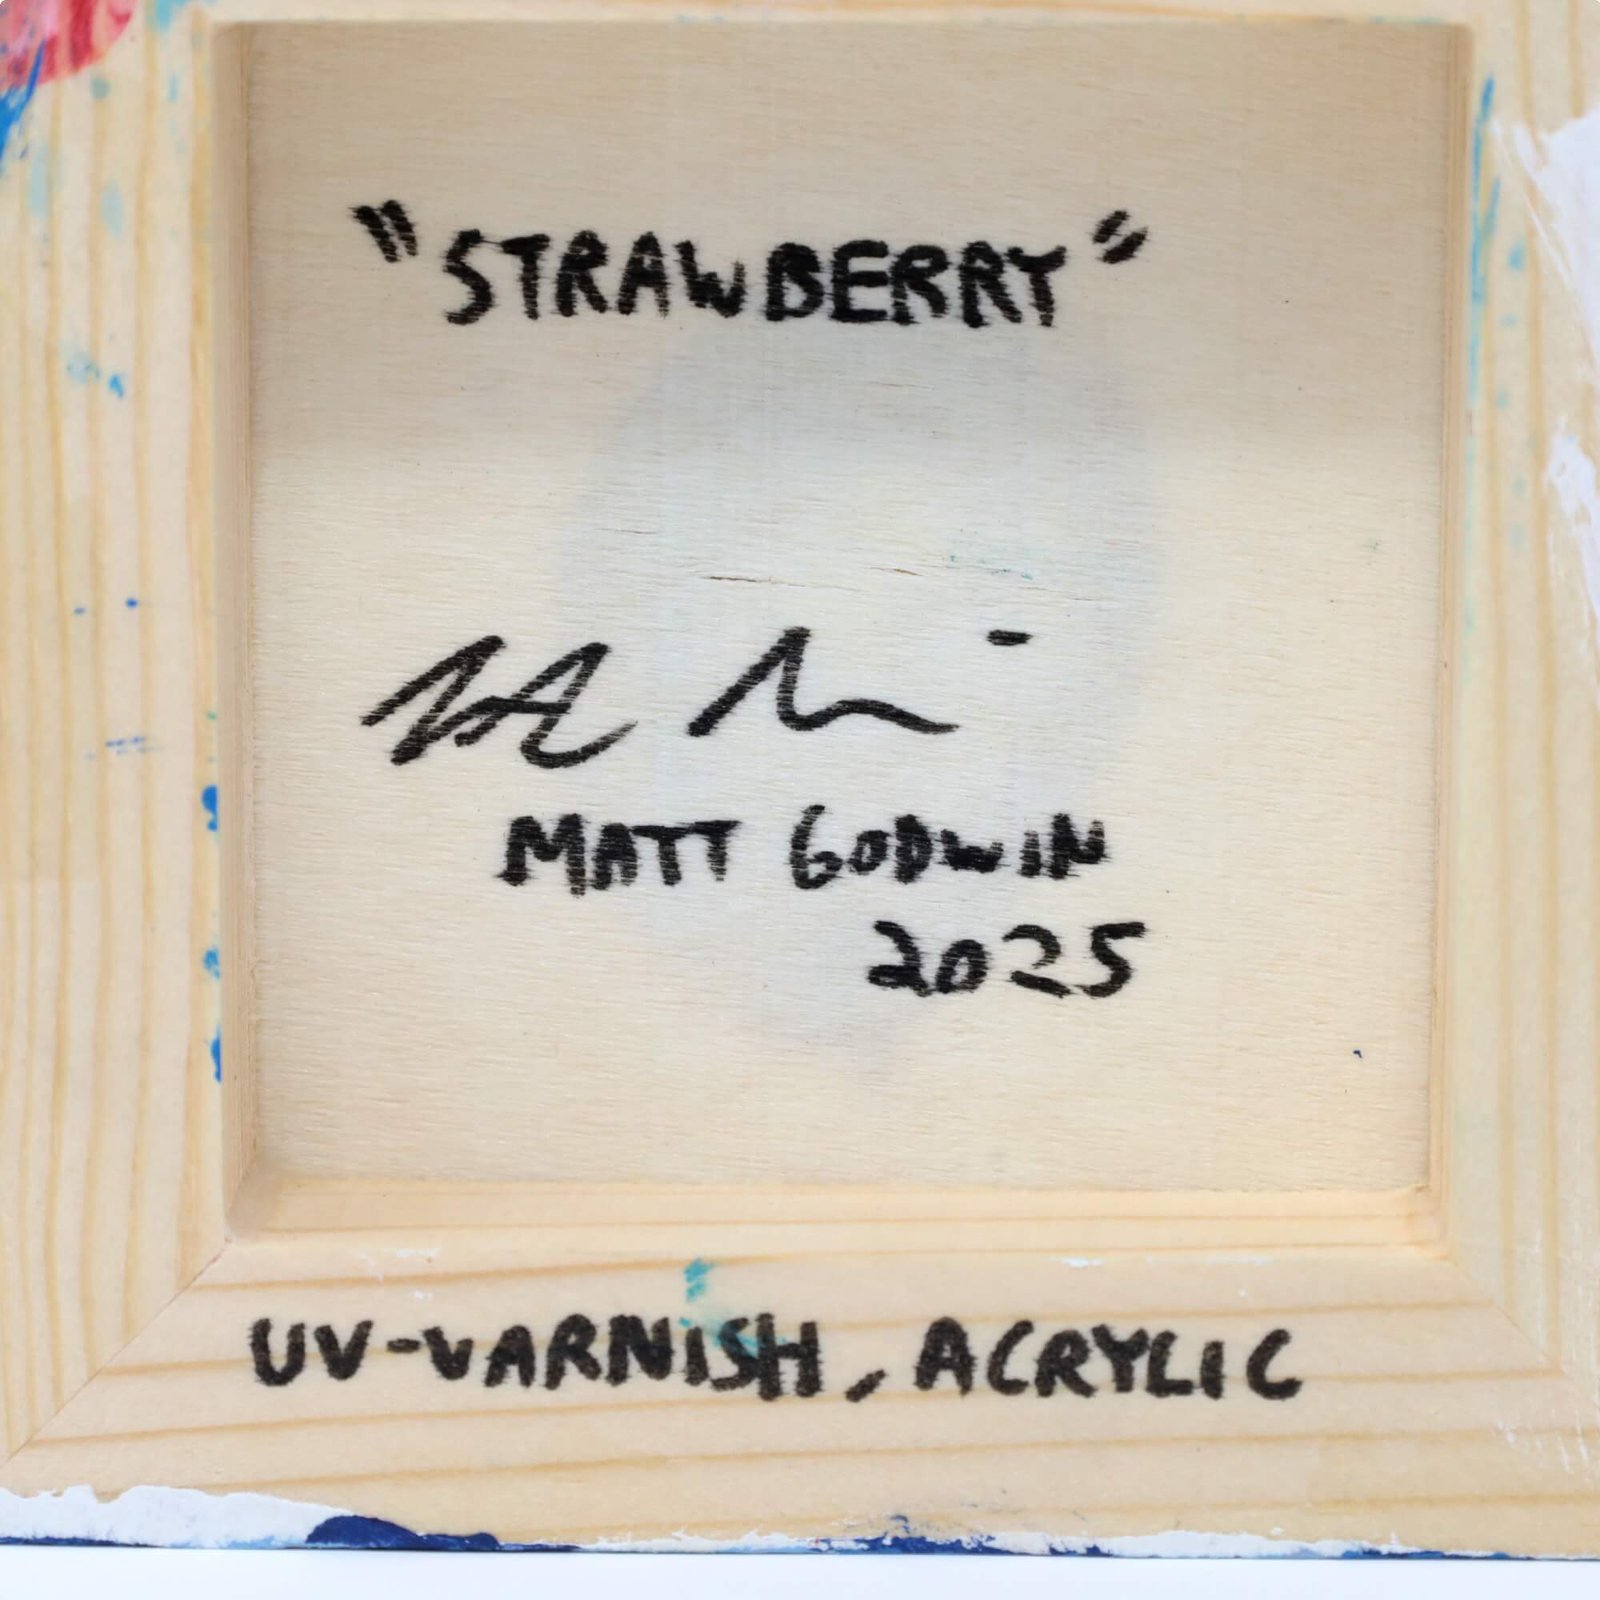 "STRAWBERRY"
MATT GODWIN
2025
UV-VARNISH, ACRYLIC